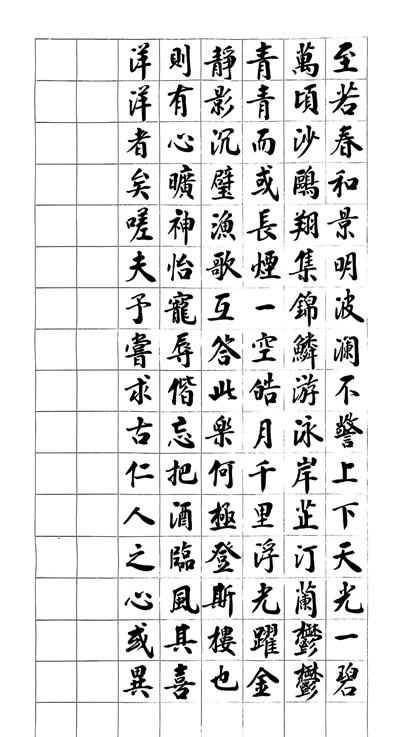 至若春和景明波澜不警上下天光一碧
萬頃沙鷗翔集錦鱗游泳岸芷汀蘭鬱鬱
青青而或長煙一空皓月千里浮光躍金
靜影沉璧漁歌互答此樂何極登斯樓也
則有心曠神怡寵辱偕忘把酒臨風其喜
洋洋者矣嗟夫予嘗求古仁人之心或異